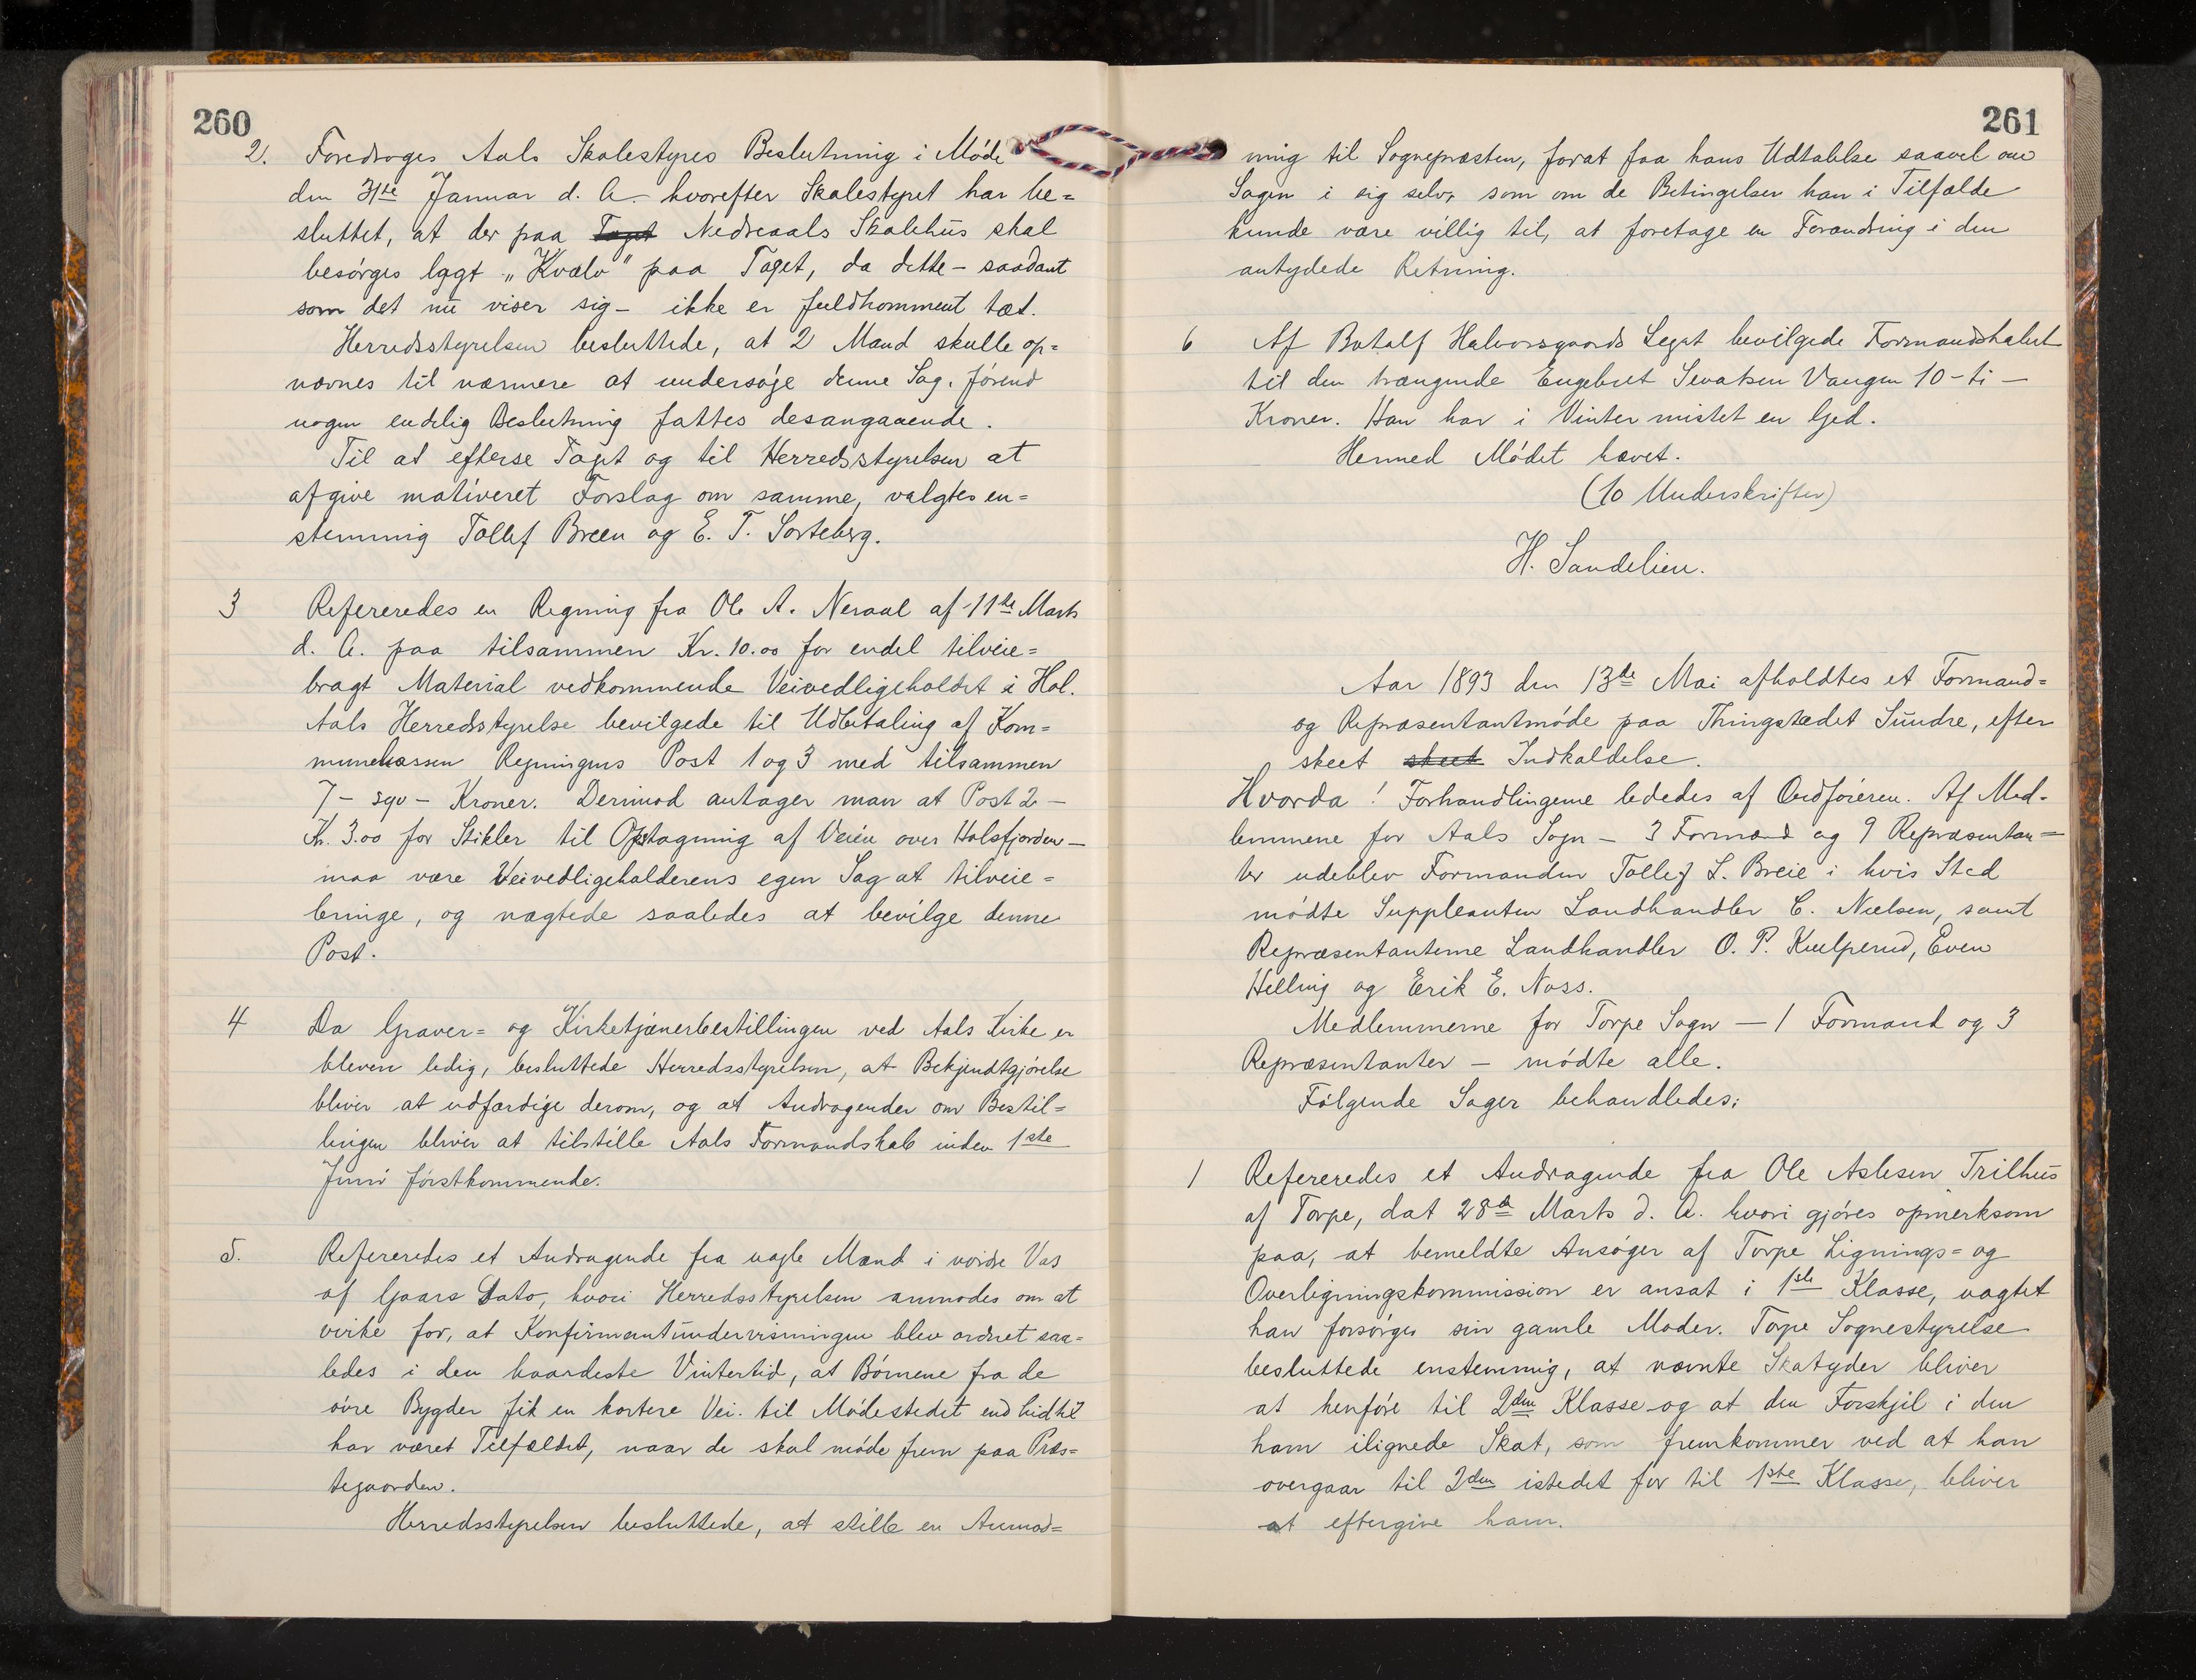 260
2. Foredroges Aals Skolestyres Beslutning i Møde
den 31te Januar d. A. hvorefter Skolestyret har be=
sluttet, at der paa Taget Nedreaals Skolehus skal
besørges lagt „Kvælv" paa Taget, da dette – saadant
som det nu viser sig – ikke er fuldkomment tæt.
Herredsstyrelsen besluttede, at 2 Mænd skulle op=
nævnes til nærmere at undersøge denne Sag, førend
nogen endelig Beslutning fattes desangaaende.
Til at efterse Taget og til Herredsstyrelsen at
afgive motiveret Forslag om samme, valgtes en=
stemmig Tollef Breen og E. T. Sorteberg.
3 Refereredes en Regning fra Ole A. Neraal af 11te Marts
d. A. paa tilsammen Kr. 10.00 for endel tilveie=
bragt Material vedkommende Veivedligeholdet i Hol.
Aals Herredsstyrelse bevilgede til Udbetaling af Kom=
munekassen Regningens Post 1 og 3 med tilsammen
7 – syv – Kroner. Derimod antager man at Post 2 –
Kr. 3.00 for Stikler til Opstagning af Veien over Holsfjorden –
maa være Veivedligeholderens egen Sag at tilveie=
bringe, og nægtede saaledes at bevilge denne
Post.
4 Da Graver= og Kirketjenerbestillingen ved Aals Kirke er
bleven ledig, besluttede Herredsstyrelsen, at Bekjendtgjørelse
bliver at udfærdige derom, og at Andragender om Bestil=
lingen bliver at tilstille Aals Formandskab inden 1ste
Juni førstkommende.
5. Refereredes et Andragende fra nogle Mænd i nordre Vas
af Gaars Dato, hvori Herredsstyrelsen anmodes om at
virke for, at Konfirmantundervisningen blev ordnet saa=
ledes i den haardeste Vintertid, at Børnene fra de
øvre Bygder fik en kortere Vei til Mødestedet end hidtil
har været Tilfældet, naar de skal møde frem paa Præs=
tegaarden.
Herredsstyrelsen besluttede, at stille en Anmod=
261
ning til Sognepræsten, forat faa hans Udtalelse saavel om
Sagen i sig selv, som om de Betingelser han i Tilfælde
kunde være villig til, at foretage en Forandring i den
antydede Retning.
6 Af Botolf Halvorsgaards Legat bevilgede Formandskabet
til den trængende Engebret Sevatsen Vangen 10 – ti –
Kroner. Han har i Vinter mistet en Gjed.
Hermed Mødet hævet.
(10 Underskrifter)
H. Sandelien.
Aar 1893 den 13de Mai afholdtes et Formand=
og Repræsentantmøde paa Thingstedet Sundre, efter
skeet skeet Indkaldelse.
Hvorda! Forhandlingerne lededes af Ordføreren. Af Med=
lemmene for Aals Sogn – 3 Formænd og 9 Repræsentan=
ter udeblev Formanden Tollef L. Breie i hvis Sted
mødte Suppleanten Landhandler C. Nielsen, samt
Repræsentanterne Landhandler O. P. Kulperud, Even
Helling og Erik E. Noss.
Medlemmerne for Torpe Sogn – 1 Formand og 3
Repræsentanter – mødte alle.
Følgende Sager behandledes:
1 Refereredes et Andragende fra Ole Aslesen Trilhus
af Torpe, dat 28de Marts d. A. hvori gjøres opmerksom
paa, at bemeldte Ansøger af Torpe Lignings= og
Overligningskommission er ansat i 1ste Klasse, uagtet
han forsørger sin gamle Moder. Torpe Sognestyrelse
besluttede enstemmig, at nævnte Skatyder bliver
at henføre til 2den Klasse og at den Forskjel i den
ham ilignede Skat, som fremkommer ved at han
overgaar til 2den istedet for til 1ste Klasse, bliver
at eftergive ham.